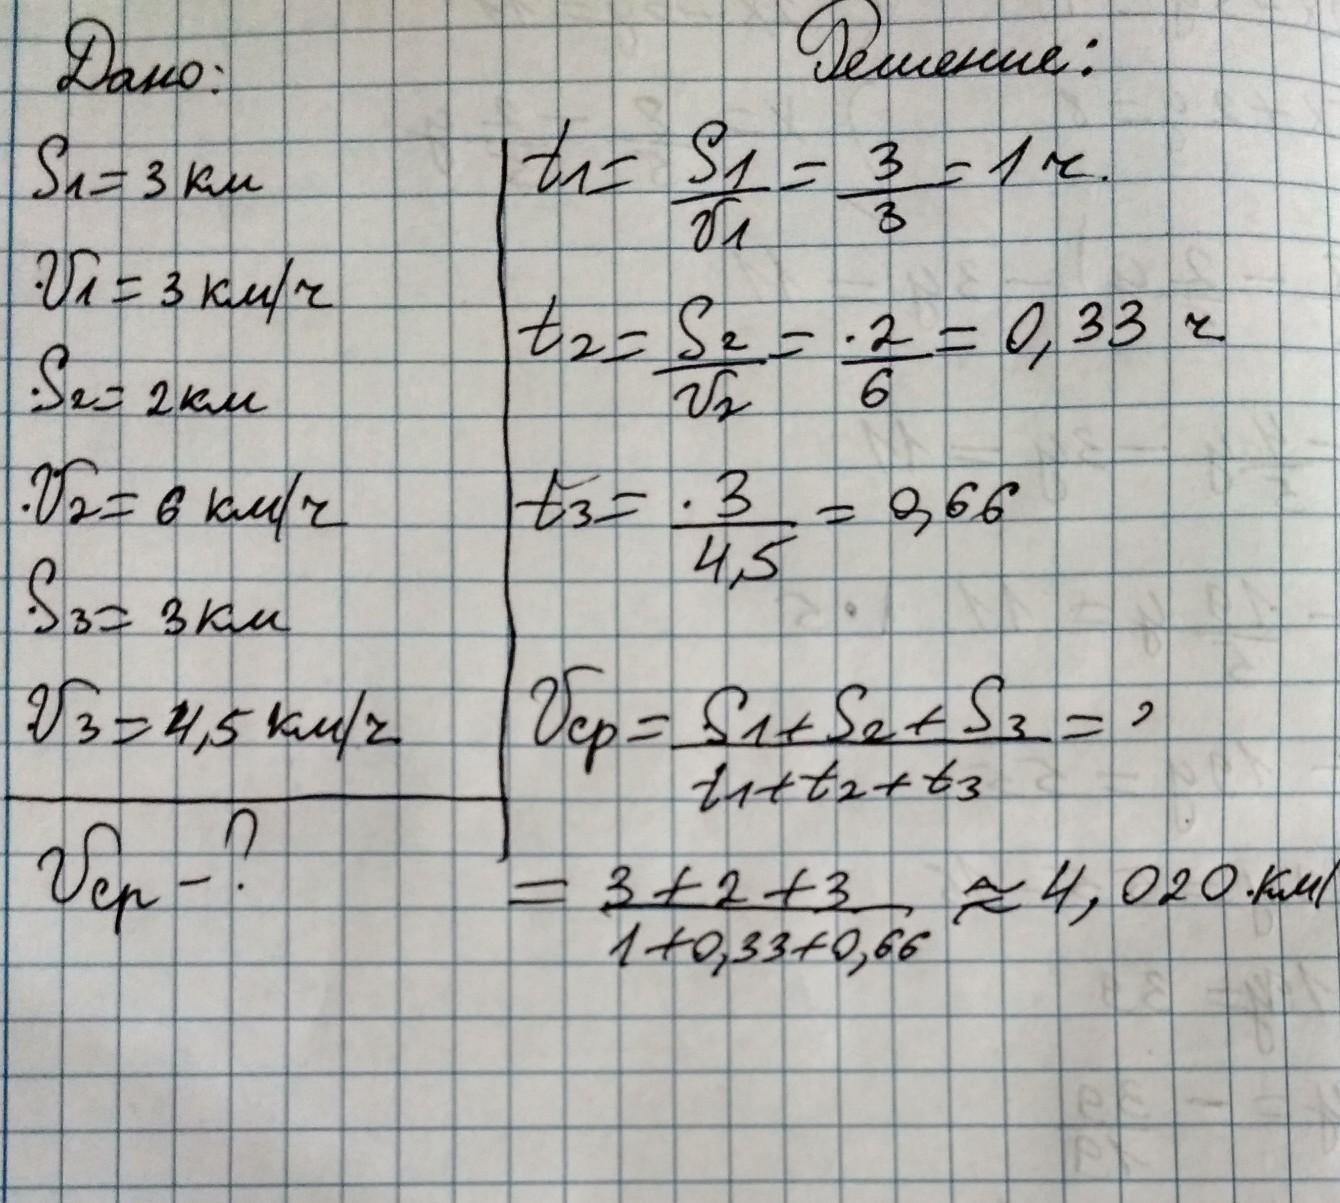 Дано:
S1 = 3 км
V1 = 3 км/ч
S2 = 2 км
V2 = 6 км/ч
S3 = 3 км
V3 = 4,5 км/ч
Vср - ?
Решение:
t1 = S1/V1 = 3/3 = 1 ч.
t2 = S2/V2 = 2/6 = 0,33 ч
t3 = 3/4,5 = 0,66
Vср = S1 + S2 + S3 / t1 + t2 + t3 = ?
= 3 + 2 + 3 / 1 + 0,33 + 0,66 ≈ 4,020 км/